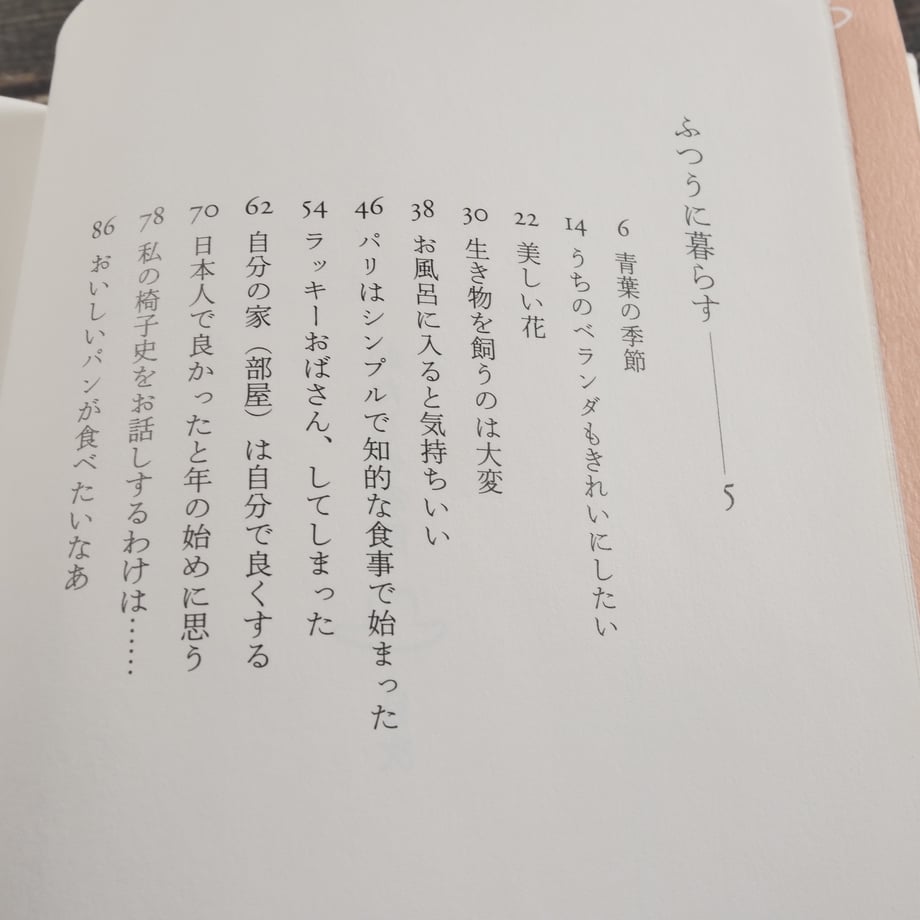 ふつうに暮らす——5
6 青葉の季節
14 うちのベランダもきれいにしたい
22 美しい花
30 生き物を飼うのは大変
38 お風呂に入ると気持ちいい
46 パリはシンプルで知的な食事で始まった
54 ラッキーおばさん、してしまった
62 自分の家（部屋）は自分で良くする
70 日本人で良かったと年の始めに思う
78 私の椅子史をお話しするわけは……
86 おいしいパンが食べたいなあ